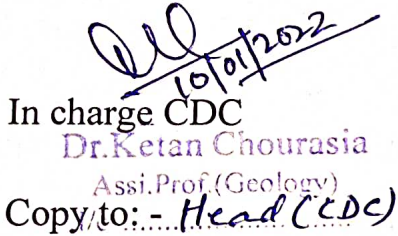 10/01/2022
In charge CDC
Dr.Ketan Chourasia
Assi.Prof.(Geology)
Copy to: - Head (CDC)